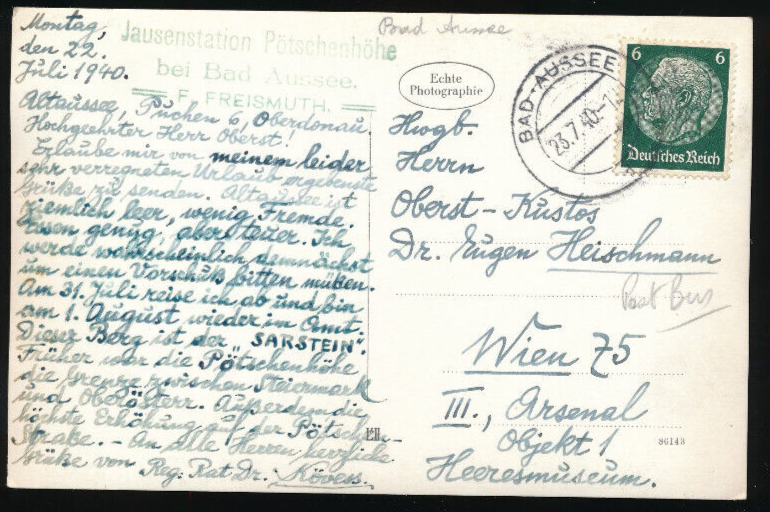 Montag,
den 22.
Juli 1940.
Jausenstation Pötschenhöhe
bei Bad Aussee.
F. FREISMUTH.
Altaussee, Puchen 6, Oberdonau.
Hochgeehrter Herr Oberst!
Erlaube mir von meinem leider
sehr verregneten Urlaub ergebenste
Grüße zu senden. Altaussee ist
ziemlich leer, wenig Fremde.
Essen genug, aber teuer. Ich
werde wahrscheinlich demnächst
um einen Vorschuß bitten müßen.
Am 31. Juli reise ich ab und bin
am 1. August wieder im Amt.
Dieser Berg ist der „SARSTEIN“.
Früher war die Pötschenhöhe
die Grenze zwischen Steiermark
und Oberösterr. Außerdem die
höchste Erhöhung auf der Pötschen-
Straße. – An alle Herren herzliche
Grüße von Reg. Rat Dr. Kövess.
Bad Aussee
Echte
Photographie
BAD-AUSSEE
23.7.40
6 6
Deutsches Reich
Hwgb.
Herrn
Oberst-Kustos
Dr. Eugen Heischmann
Wien 75
III., Arsenal
Objekt 1
Heeresmuseum.
86143